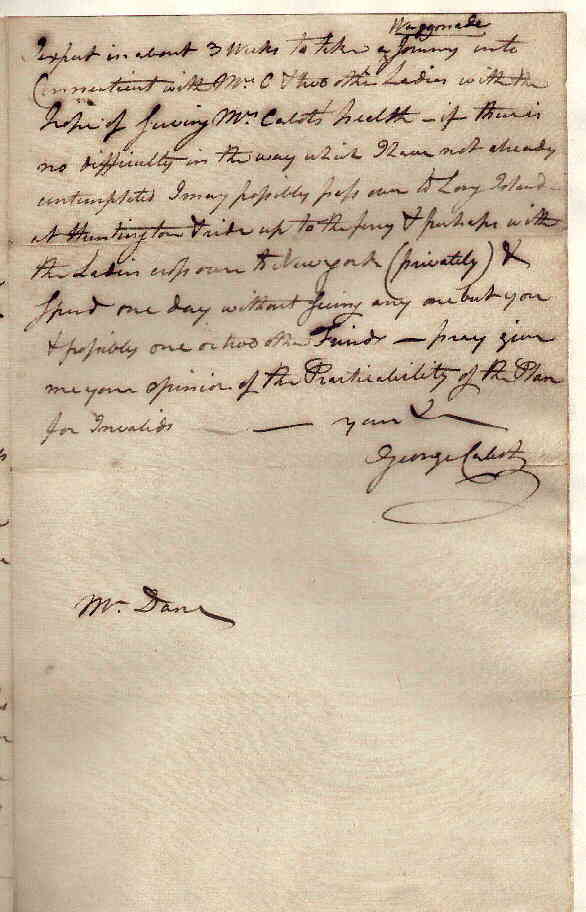 Waggonade
I expect in about 3 Weeks to take a Journey into
Connecticut with Mrs C & two other Ladies with the
hope of serving Mrs Cabots health – if there is
no difficulty in the way which I have not already
contemplated I may possibly pass over to Long Island –
at Huntington & ride up to the ferry & perhaps with
the Ladies cross over to New york (privately) &
spend one day without seeing any one but you
& possibly one or two other Friends – pray give
me your opinion of the Practicability of the Plan
for Invalids — — your &
George Cabot
Mr. Dane